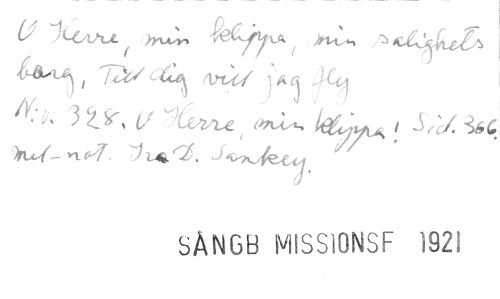 O Herre, min klippa, min salighets
borg, Till dig vill jag fly
N:o. 328. O Herre, min klippa! Sid. 366.
mel-not. Ira D. Sankey.
SÅNGB MISSIONSF 1921